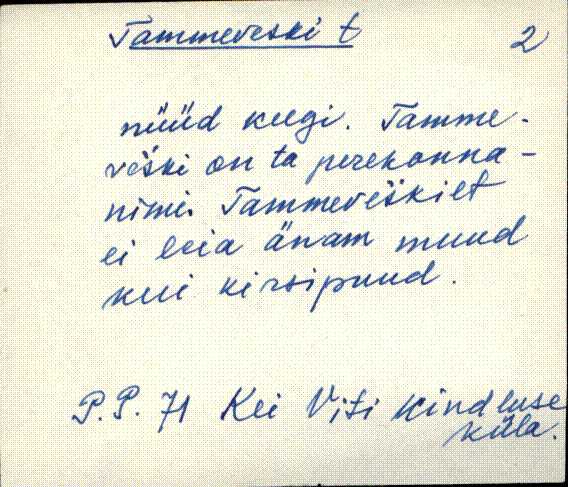 Tammeveski t
2
nüüd keegi. Tamme-
veski on ta perekonna-
nimi. Tammeveskilt
ei leia änam muud
kui kirsipuud.
P.P. 71 Kei Viti Kindluse
küla.